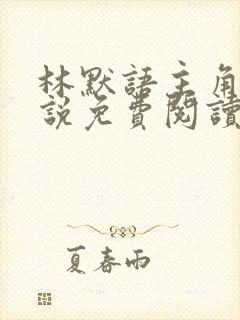 林默語主角
說免費閱讀
夏春雨